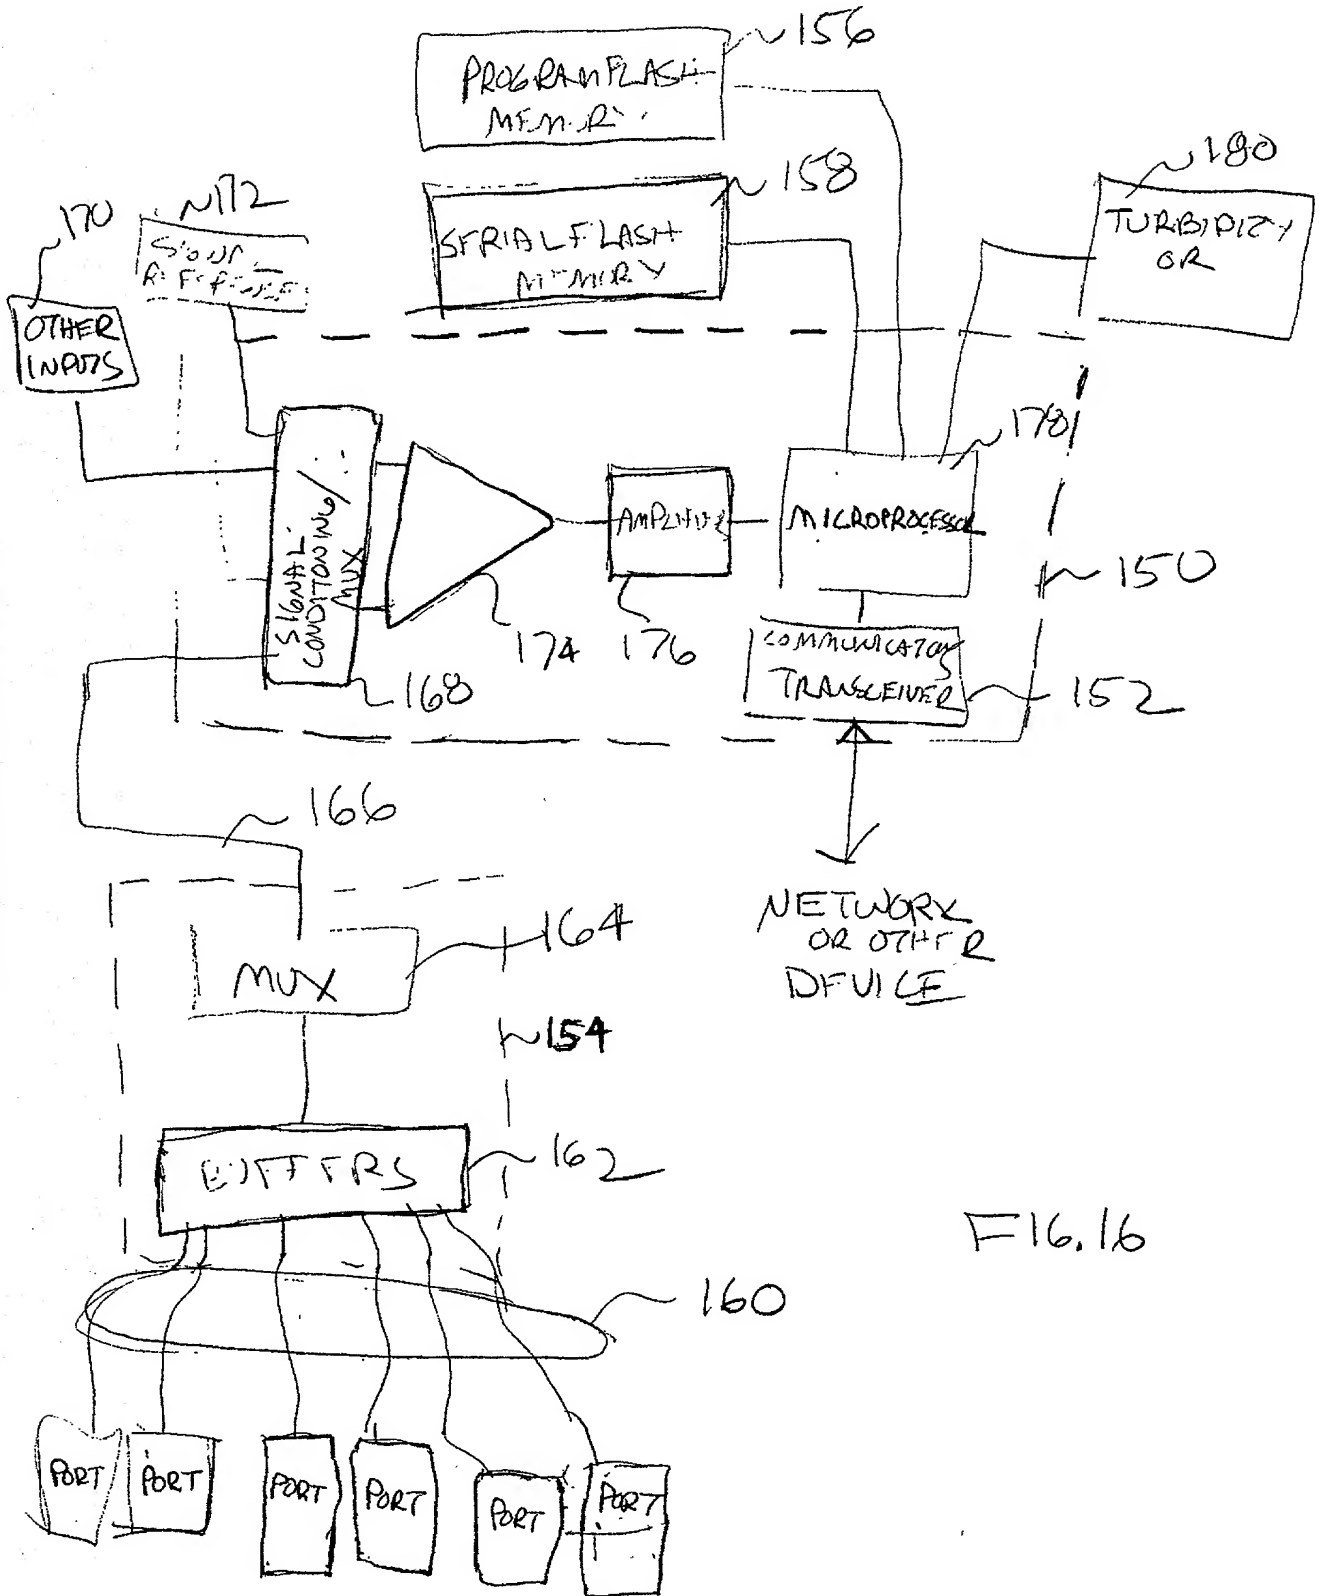 156
PROGRAM FLASH
158
180
SERIAL FLASH
MEMORY
TURBIDITY
OR
172
170
OTHER
INPUTS
178
SIGNAL
CONDITONING/
MUX
AMPLIFIER
MICROPROCESSOR
150
174
176
168
COMMUNICATION
TRANSCEIVER
152
166
NETWORK
OR OTHER
DEVICE
164
MUX
154
BUFFERS
162
FIG.16
160
PORT
PORT
PORT
PORT
PORT
PORT